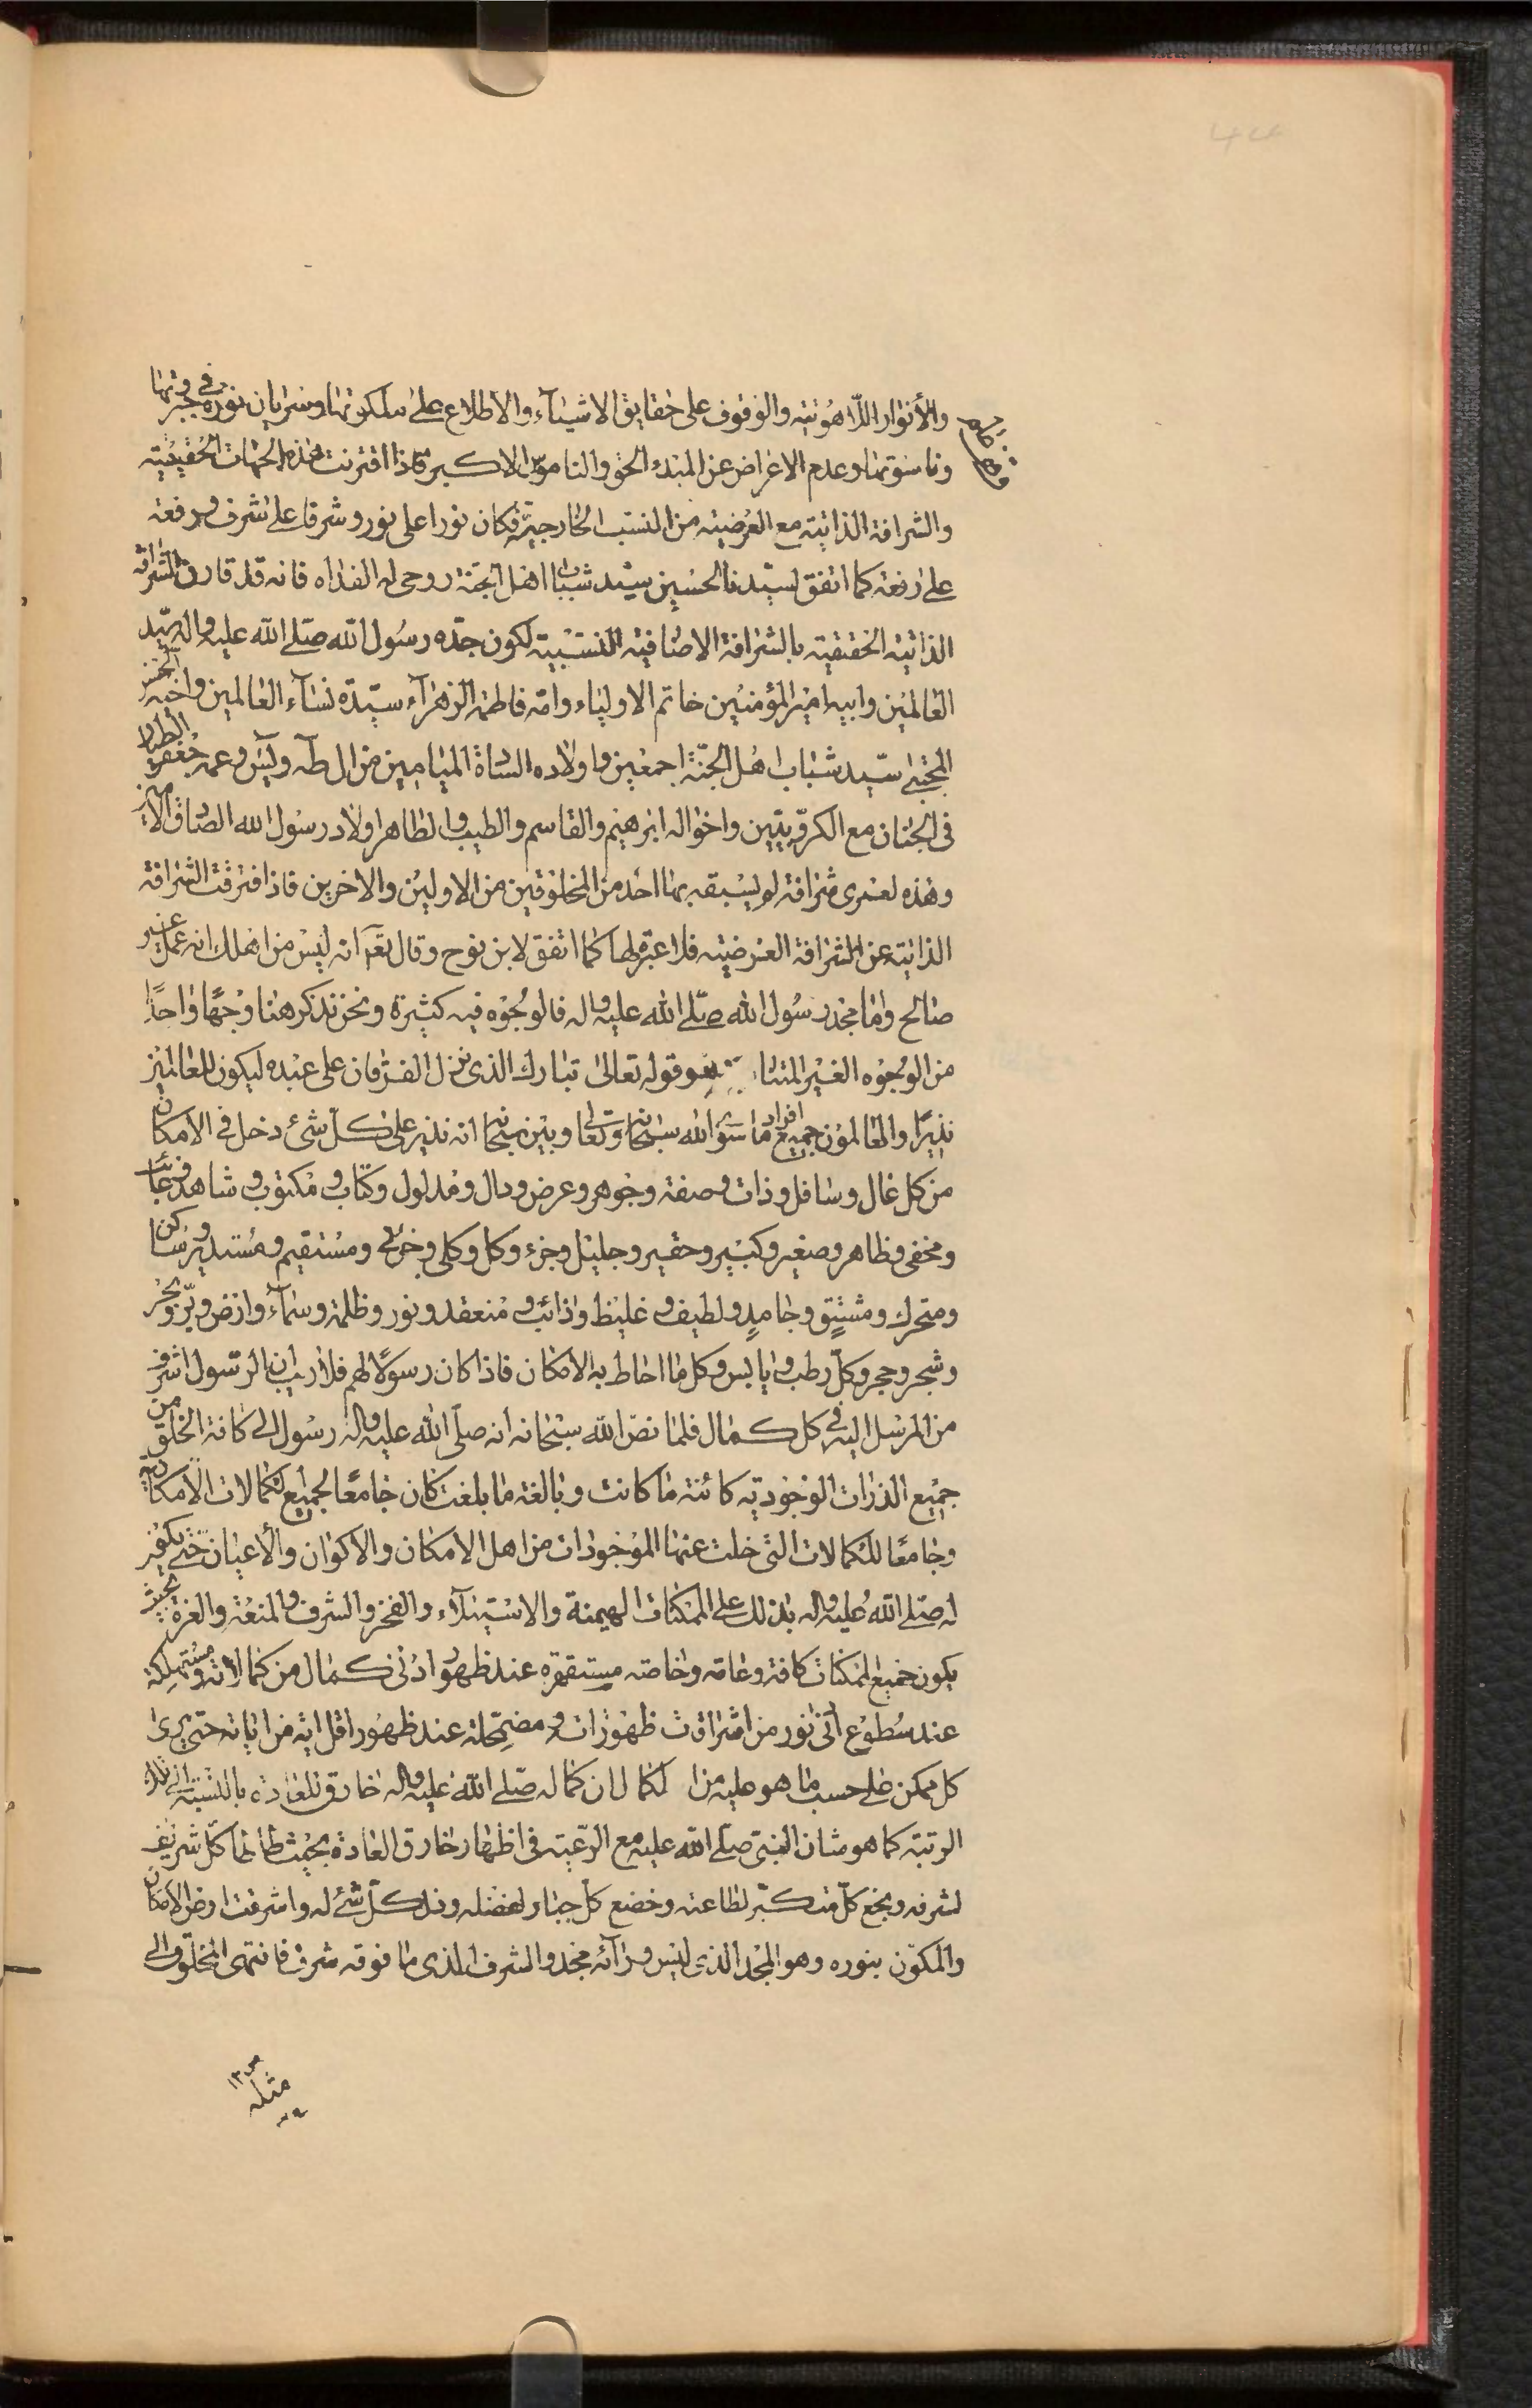 والأنوار اللّاهوتية والوقوف على حقايق الاشيآء والاطلاع على ملكوتها وسريان نوره في جبروتها
وناسوتها وعدم الاعراض عن المبدء الحق والناموس الاكبر فاذا اقترنت هذه الجهات الحقيقية
والشرافة الذاتية مع العرضية من النسب الخارجية فكان نورا على نور وشرفا على شرف ورفعة
على رفعة كما اتفق لسيّدنا الحسين سيّد شباب اهل الجنّة روحى له الفداه فانه قد قارن الشرافة
الذاتية الحقيقية بالشرافة الاضافية النسبية لكون جدّه رسول الله صلى الله عليه واله سيّد
العالمين وابيه امير المؤمنين خاتم الاولياء وامّه فاطمة الزهرآء سيّدة نسآء العالمين واخيه الحسن
المجتبى سيّد شباب اهل الجنّة اجمعين واولاده الساداة الميامين من ال طه ويس وعمه جعفر الطيار
فى الجنان مع الكروبيّين واخواله ابرهيم والقاسم والطيب والطاهر اولاد رسول الله الصادق الامين
وهذه لعمرى شرافة لم يسبقه بها احد من المخلوقين من الاولين والاخرين فاذا افترقت الشرافة
الذاتية عن الشرافة العرضية فلا عبرة لها كما اتفق لابن نوح وقال تعالى انه ليس من اهلك انه عمل غير
صالح واما مجد رسول الله صلّى الله عليه واله فالوجوه فيه كثيرة ونحن نذكر هنا وجهًا واحدًا
من الوجوه الغير قوله تعالى تبارك الذى نزل الفرقان على عبده ليكون للعالمين
نذيرًا والعالمون جميع افراد ما سوى الله سبحانه وتعالى وبين سبحانه انه نذير على كل شئ دخل فى الامكان
من كل عال وسافل وذات وصفة وجوهر وعرض ودال ومدلول وكتاب ومكتوب وشاهد وغائب
ومخفى وظاهر وصغير وكبير وحقير وجليل وجزء وكل وكلى وجزئى ومستقيم ومستدير وساكن
ومتحرك ومشتق وجامد ولطيف وغليظ وذائب ومنعقد ونور وظلمة وسمآء وارض وبرّ وبحر
وشجر وحجر وكلّ رطب ويابس وكل ما احاط به الامكان فاذا كان رسولًا لهم فلا ريب ان الرسول اشرف
من المرسل اليه فى كل كمال فلما نصّ الله سبحانه انه صلّى الله عليه واله رسول الى كافة الخلق من
جميع الذرات الوجودية كائنة ما كانت وبالغة ما بلغت كان جامعًا لجميع الكمالات الامكانية
وجامعًا للكمالات التى خلت عنها الموجودات من اهل الامكان والاكوان والأعيان حتى يكون
له صلى الله عليه واله بذلك على الممكنات الهيمنة والاستيلآء والفخر والشرف والمنعة والعزة بحيث
يكون جميع الممكنات كافة وعامة وخاصة مستقهرة عند ظهور ادنى كمال من كمالاته ومستهلكة
عند سطوع انى نور من اشراقات ظهوراته ومضمحلة عند ظهور اقل اية من اياته حتى يرى
كل ممكن على حسب ما هو عليه من الكمال ان كماله صلى الله عليه واله خارق للعادة بالنسبة الى تلك
الرتبة كما هو شان النبى صلى الله عليه مع الرعية فى اظهار خارق العادة بحيث طاطا كلّ شريف
لشرفه وبخع كلّ متكبّر لطاعته وخضع كلّ جبار لفضله وذل كلّ شئ له واشرقت ارض الامكان
والمكوّن بنوره وهو المجد الذى ليس ورآئه مجد والشرف الذى ما فوقه شرف فانتهى المخلوق الى
مثله